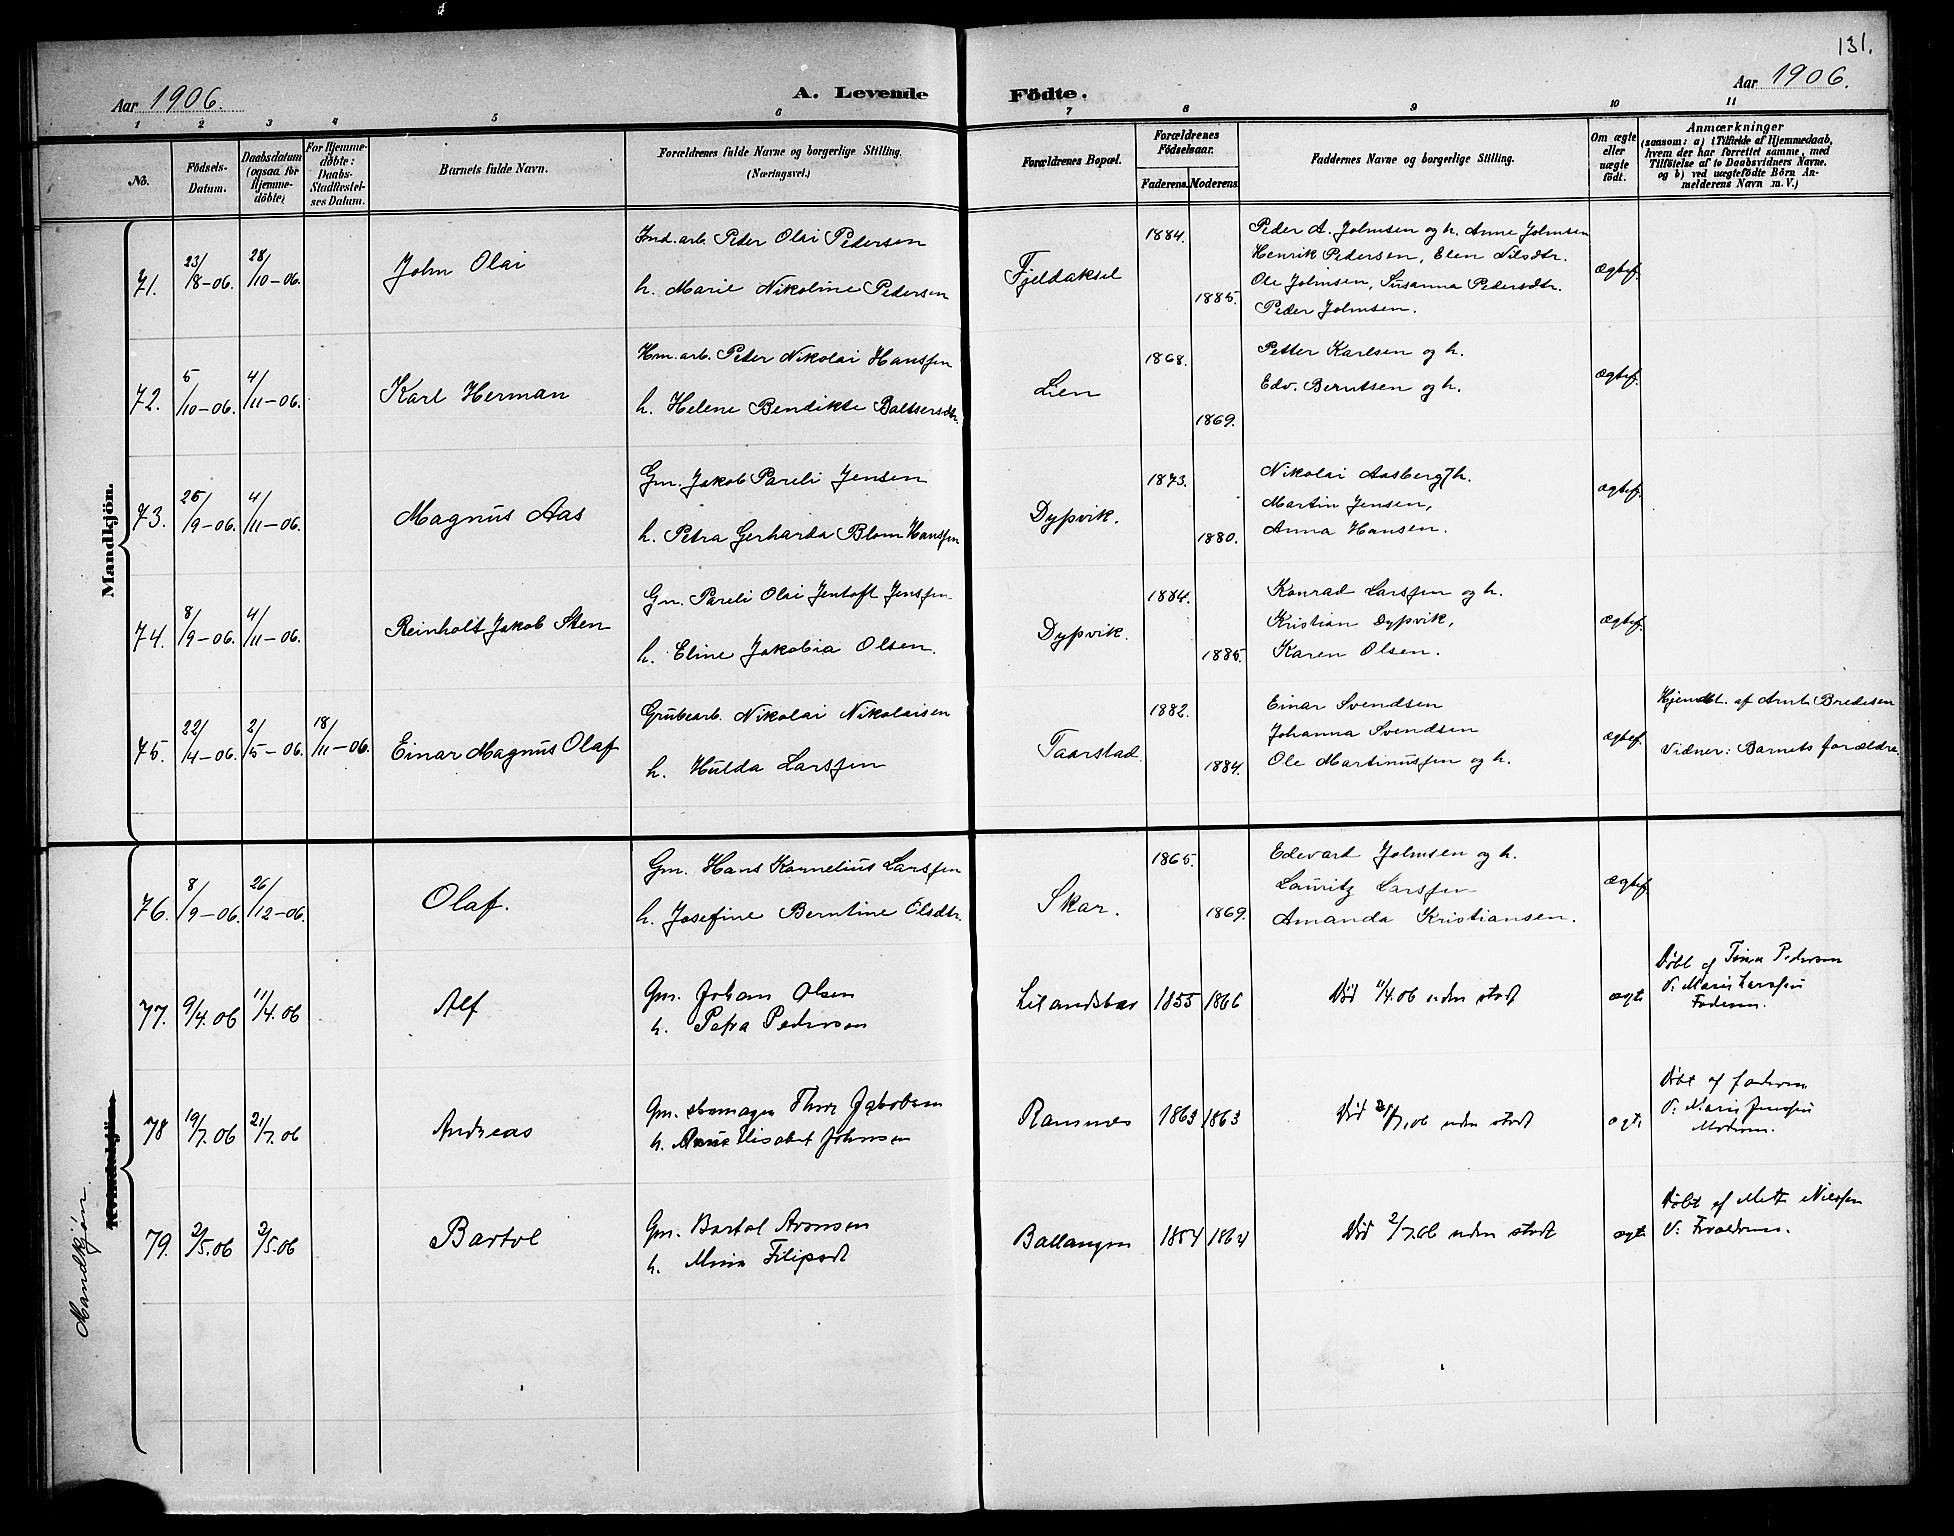 131.
Aar 1906.
A. Levende Födte.
Aar 1906.
1 2 3 4 5 6 7 8 9 10 11
No.
Födsels-Datum.
Daabsdatum (ogsaa for Hjemme-döbte)
For Hjemme-döbte: Daabs-Stadfæstel-ses Datum.
Barnets fulde Navn.
Forældrenes fulde Navne og borgerlige Stilling. (Næringsvei.)
Forældrenes Bopæl.
Forældrenes Födselsaar.
Faderens. Moderens.
Faddernes Navne og borgerlige Stilling.
Om ægte eller uægte födt.
Anmærkninger
(saasom: a) i Tilfælde af Hjemmedaab,
hvem der har forrettet samme, med
Tilföielse af to Daabsvidners Navne.
og b) ved uægtefödte Börn An-
melderens Navn m. V.)
Mandkjön.
71. 23/8-06. 28/10-06. John Olai
Ind. arb. Peter Olai Pedersen
h. Marie Nikoline Pedersen
Fjeldaksel 1884. 1885.
Peder A. Johnsen og h. Anne Johnsen
Henrik Pedersen, Elen Nilsdtr.
Ole Johnsen, Susanna Pedersdtr.
Peder Johnsen.
ægtef.
72. 5/10-06. 4/11-06. Karl Herman
Hm. arb. Peter Nikolai Hanssen
h. Helene Bendikte Baltsersdtr.
Lien 1868. 1869.
Petter Karlsen og h.
Edv. Berntsen og h.
ægtef.
73. 26/9-06. 4/11-06. Magnus Aas
Gm. Jakob Pareli Jensen
h. Petra Gerharda Blom Hanssen
Dypvik. 1873. 1880.
Nikolai Aasberg h.
Martin Jensen,
Anna Hansen.
ægtef.
74. 8/9-06. 4/11-06. Reinholt Jakob Sten
Gm. Pareli Olai Jentoft Jenssen
h. Eline Jakobia Olsen.
Dypvik. 1884. 1885.
Konrad Larssen og h.
Kristian Dypvik,
Karen Olsen.
ægtef.
75. 22/4-06. 2/5-06. 18/11-06. Einar Magnus Olaf
Grubearb. Nikolai Nikolaisen
h. Hulda Larssen
Taarstad 1882. 1884.
Einar Svendsen
Johanna Svendsen
Ole Martinussen og h.
ægtef.
Hjemdbt. af Arnt Bredesen
Vidner: Barnets forældre.
Kvindekjön.
Mandkjøn.
76. 8/9-06. 26/12-06. Olaf.
Gm. Hans Kornelius Larssen
h. Josefine Berntine Olsdtr.
Skar. 1865. 1869.
Edevart Johnsen og h.
Lauritz Larssen
Amanda Kristiansen.
ægtef.
77. 9/4.06 11/4.06 Alf
Gm. Johan Olsen
h. Petra Pedersen
Lilandsbar 1855 1866
Død 11/4.06 uden stadf
ægte
Døbt af Pedersen
V: Marie Larssen
Faderen.
78 19/7.06 21/7.06 Andreas
Gm. Thor Jakobsen
h. Elisabet Johnsen
Ramnes 1863 1863
Død 21/7.06 uden stadf
ægte
Døbt af faderen
V: Marie Jenssen
Moderen.
79. 2/5.06 3/5.06 Bartol
Gm. Bartol Aronsen
h. Mina Filipsdt
Ballangen 1854 1864
Død 2/7.06 uden stadf
ægte
Døbt af Mette Nilssen
V: Forældrene.